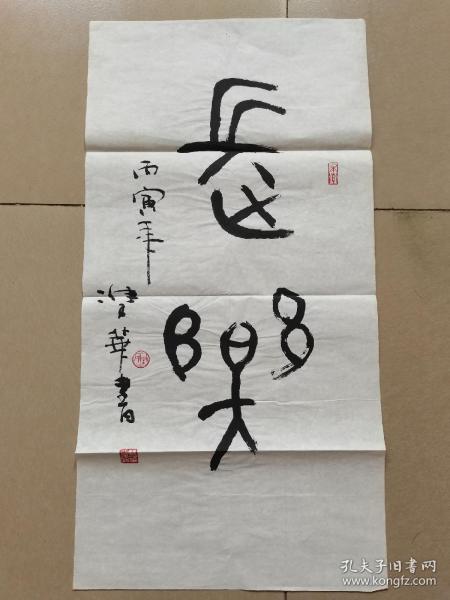 長樂
丙寅年
華書
孔夫子旧书网
www.kongfz.com